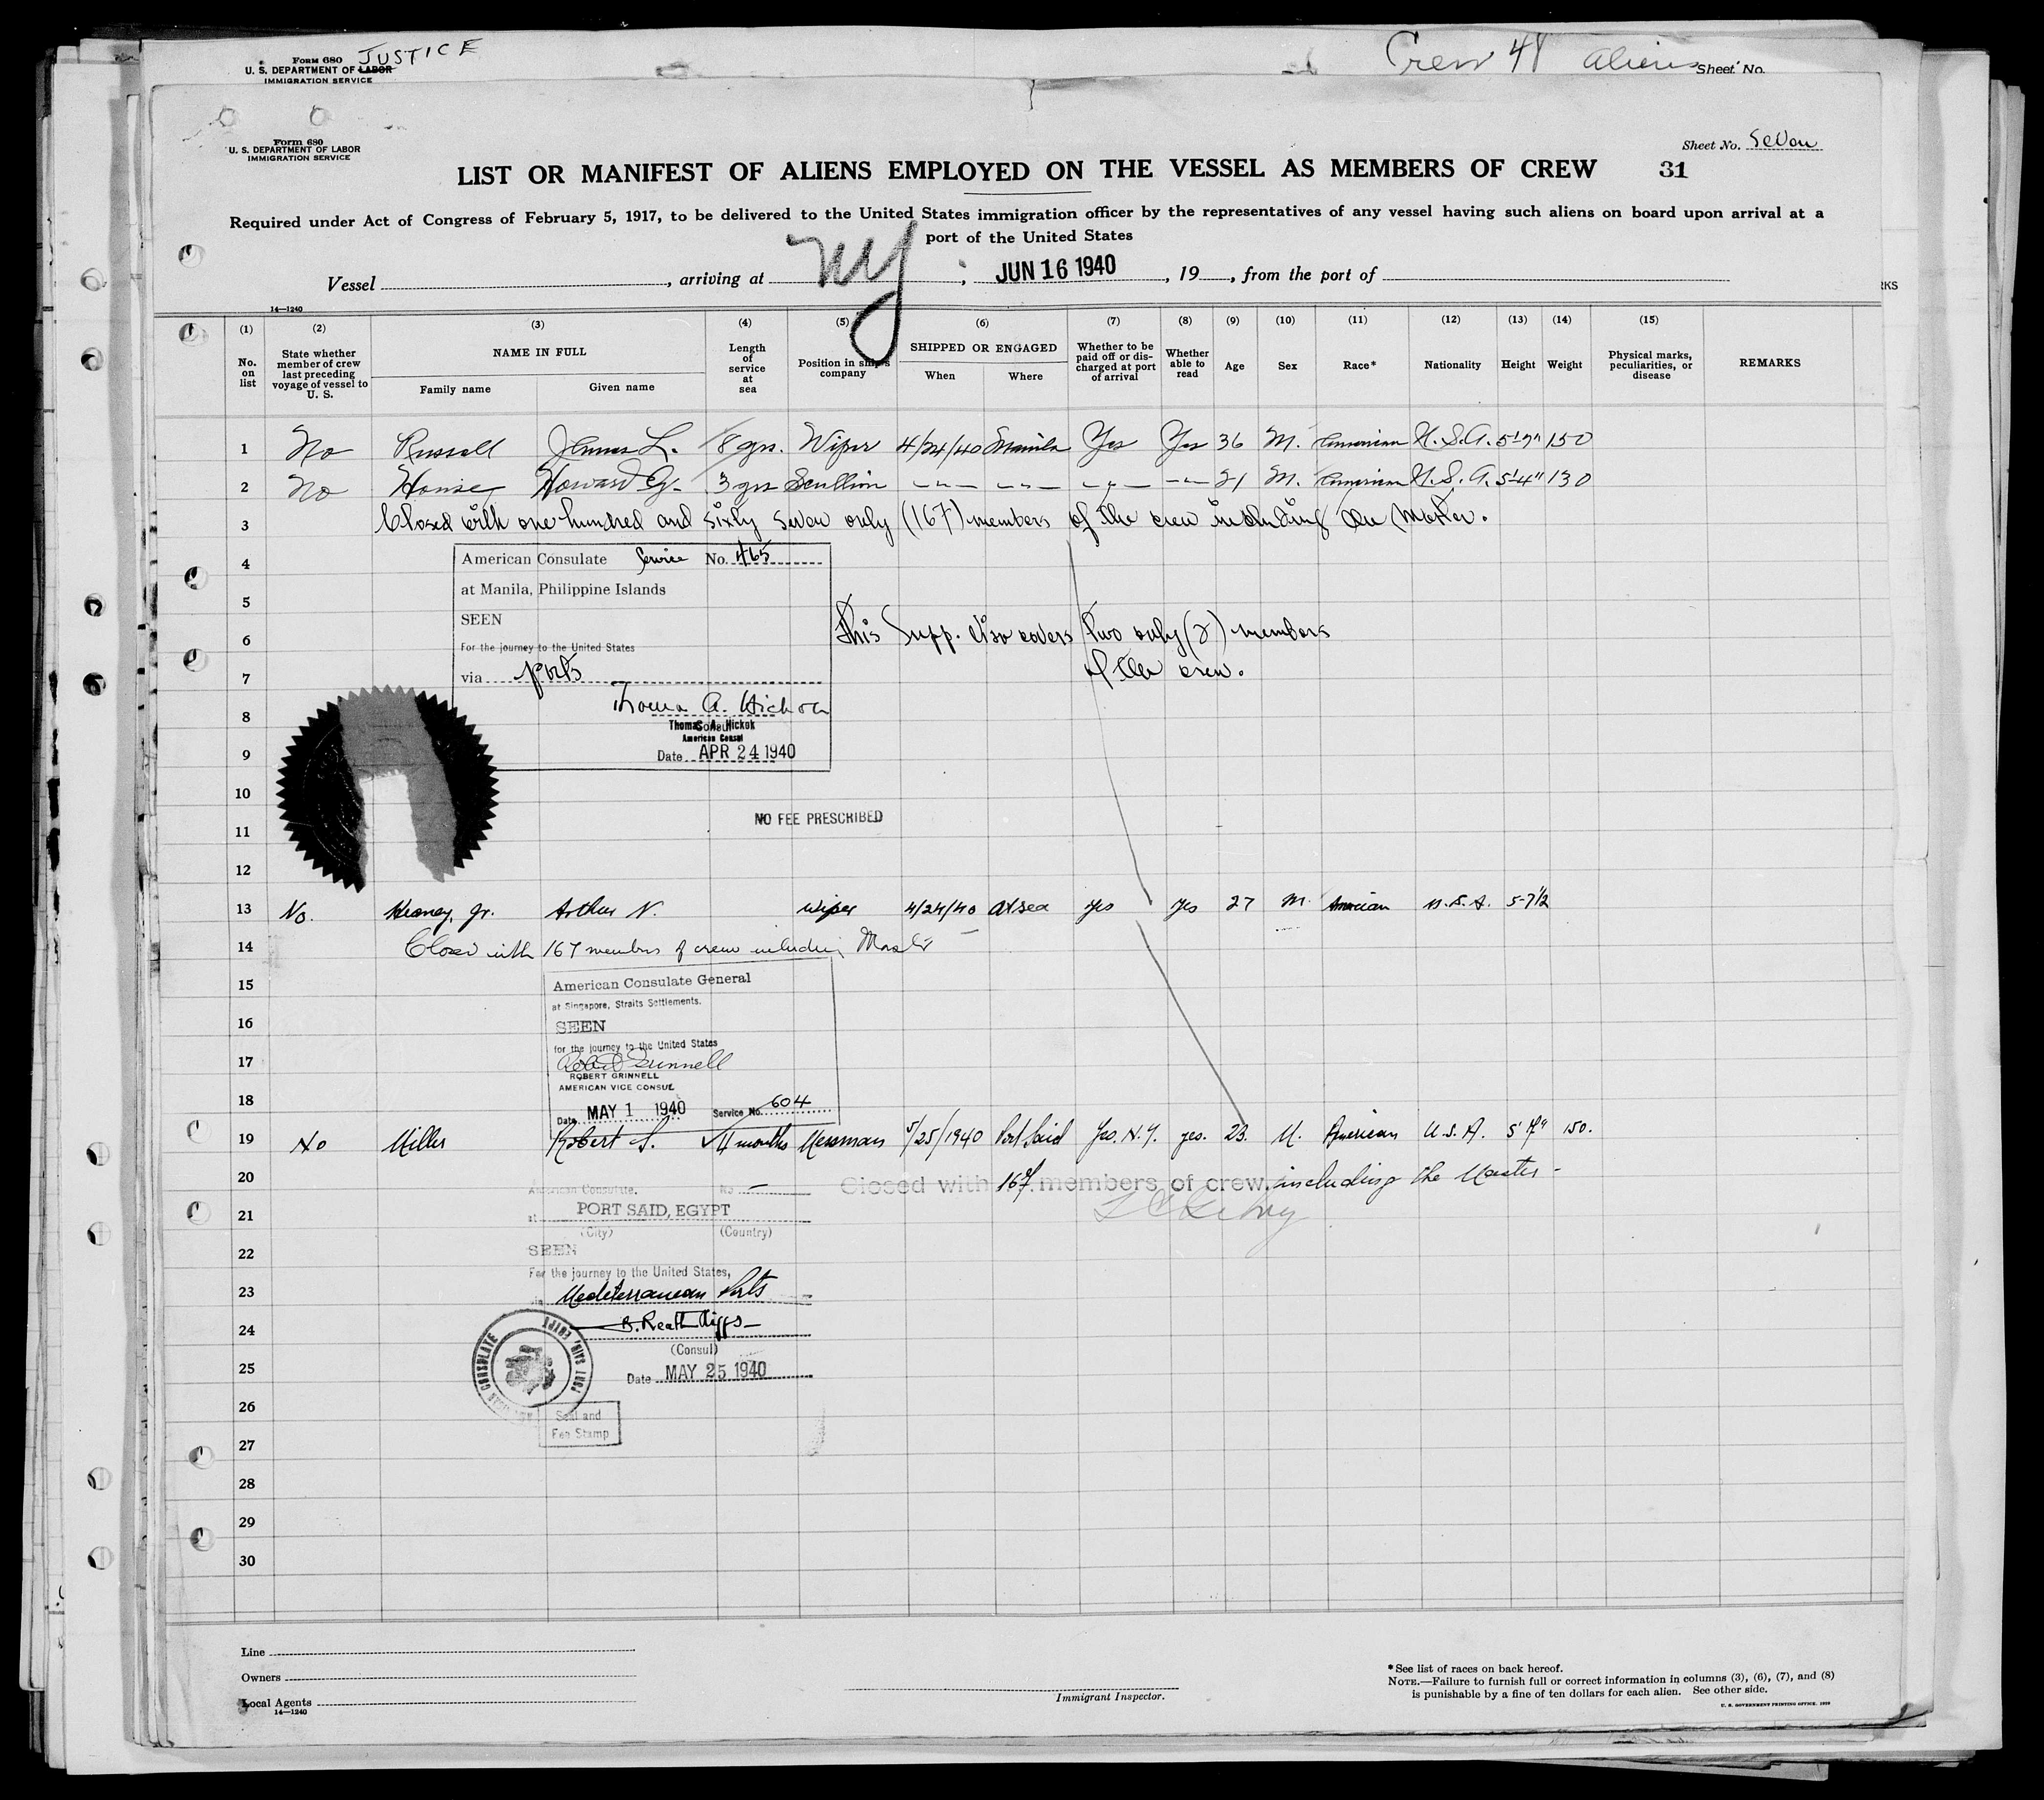 FORM 680 JUSTICE
U. S. DEPARTMENT OF LABOR
IMMIGRATION SERVICE
Crew 48 aliens Sheet No.
Form 680
U. S. DEPARTMENT OF LABOR
IMMIGRATION SERVICE
Sheet No. Seven
LIST OR MANIFEST OF ALIENS EMPLOYED ON THE VESSEL AS MEMBERS OF CREW 31
Required under Act of Congress of February 5, 1917, to be delivered to the United States immigration officer by the representatives of any vessel having such aliens on board upon arrival at a
port of the United States
Vessel , arriving at NY , JUN 16 1940 , 19 , from the port of
RKS
14—1240
(1) (2) (3) (4) (5) (6) (7) (8) (9) (10) (11) (12) (13) (14) (15)
No. on list
State whether member of crew last preceding voyage of vessel to U. S.
NAME IN FULL
Family name
Given name
Length of service at sea
Position in ship's company
SHIPPED OR ENGAGED
When
Where
Whether to be paid off or discharged at port of arrival
Whether able to read
Age
Sex
Race*
Nationality
Height
Weight
Physical marks, peculiarities, or disease
REMARKS
1 No Russell James L. 8 yrs. Wiper 4/24/40 Manila Yes Yes 36 M. American U.S.A. 150
2 No Howard G. 3 yrs Scullion 21 M. American U.S.A. 5'-4" 130
3 Closed with one hundred and sixty seven only (167) members of the crew including the Master.
4 American Consulate Service No. 465
5 at Manila, Philippine Islands
SEEN
6 This Supp. also covers two only (2) members
For the journey to the United States
7 via ports of the crew.
8 Thomas A. Hickok
Thomas A. Hickok
Consul
American Consul
9 Date APR 24 1940
10
11 NO FEE PRESCRIBED
12
13 No. Jr. Arthur N. Wiper 4/24/40 At sea yes yes 27 M. American U.S.A. 5-7½
14 Closed with 167 members of crew including Master
15 American Consulate General
at Singapore, Straits Settlements.
16 SEEN
for the journey to the United States
17 Robert Grinnell
ROBERT GRINNELL
AMERICAN VICE CONSUL
18 Date MAY 1 1940 Service No. 604
19 No Miller Robert S. 4 months Messman 5/25/1940 Port Said Yes. N.Y. yes. 23. M. American U.S.A. 150.
20 Closed with 167 members of crew. including the Master -
American Consulate. No —
21 at PORT SAID, EGYPT
(City) (Country)
22 SEEN
For the journey to the United States,
23 Mediterranean Ports
24 B. Reath Riggs
(Consul)
25 Date MAY 25 1940
AMERICAN CONSULATE PORT SAID, EGYPT
26 Seal and
Fee Stamp
27
28
29
30
Line
Owners
Local Agents
14—1240
Immigrant Inspector.
*See list of races on back hereof.
NOTE.—Failure to furnish full or correct information in columns (3), (6), (7), and (8)
is punishable by a fine of ten dollars for each alien. See other side.
U. S. GOVERNMENT PRINTING OFFICE. 1939